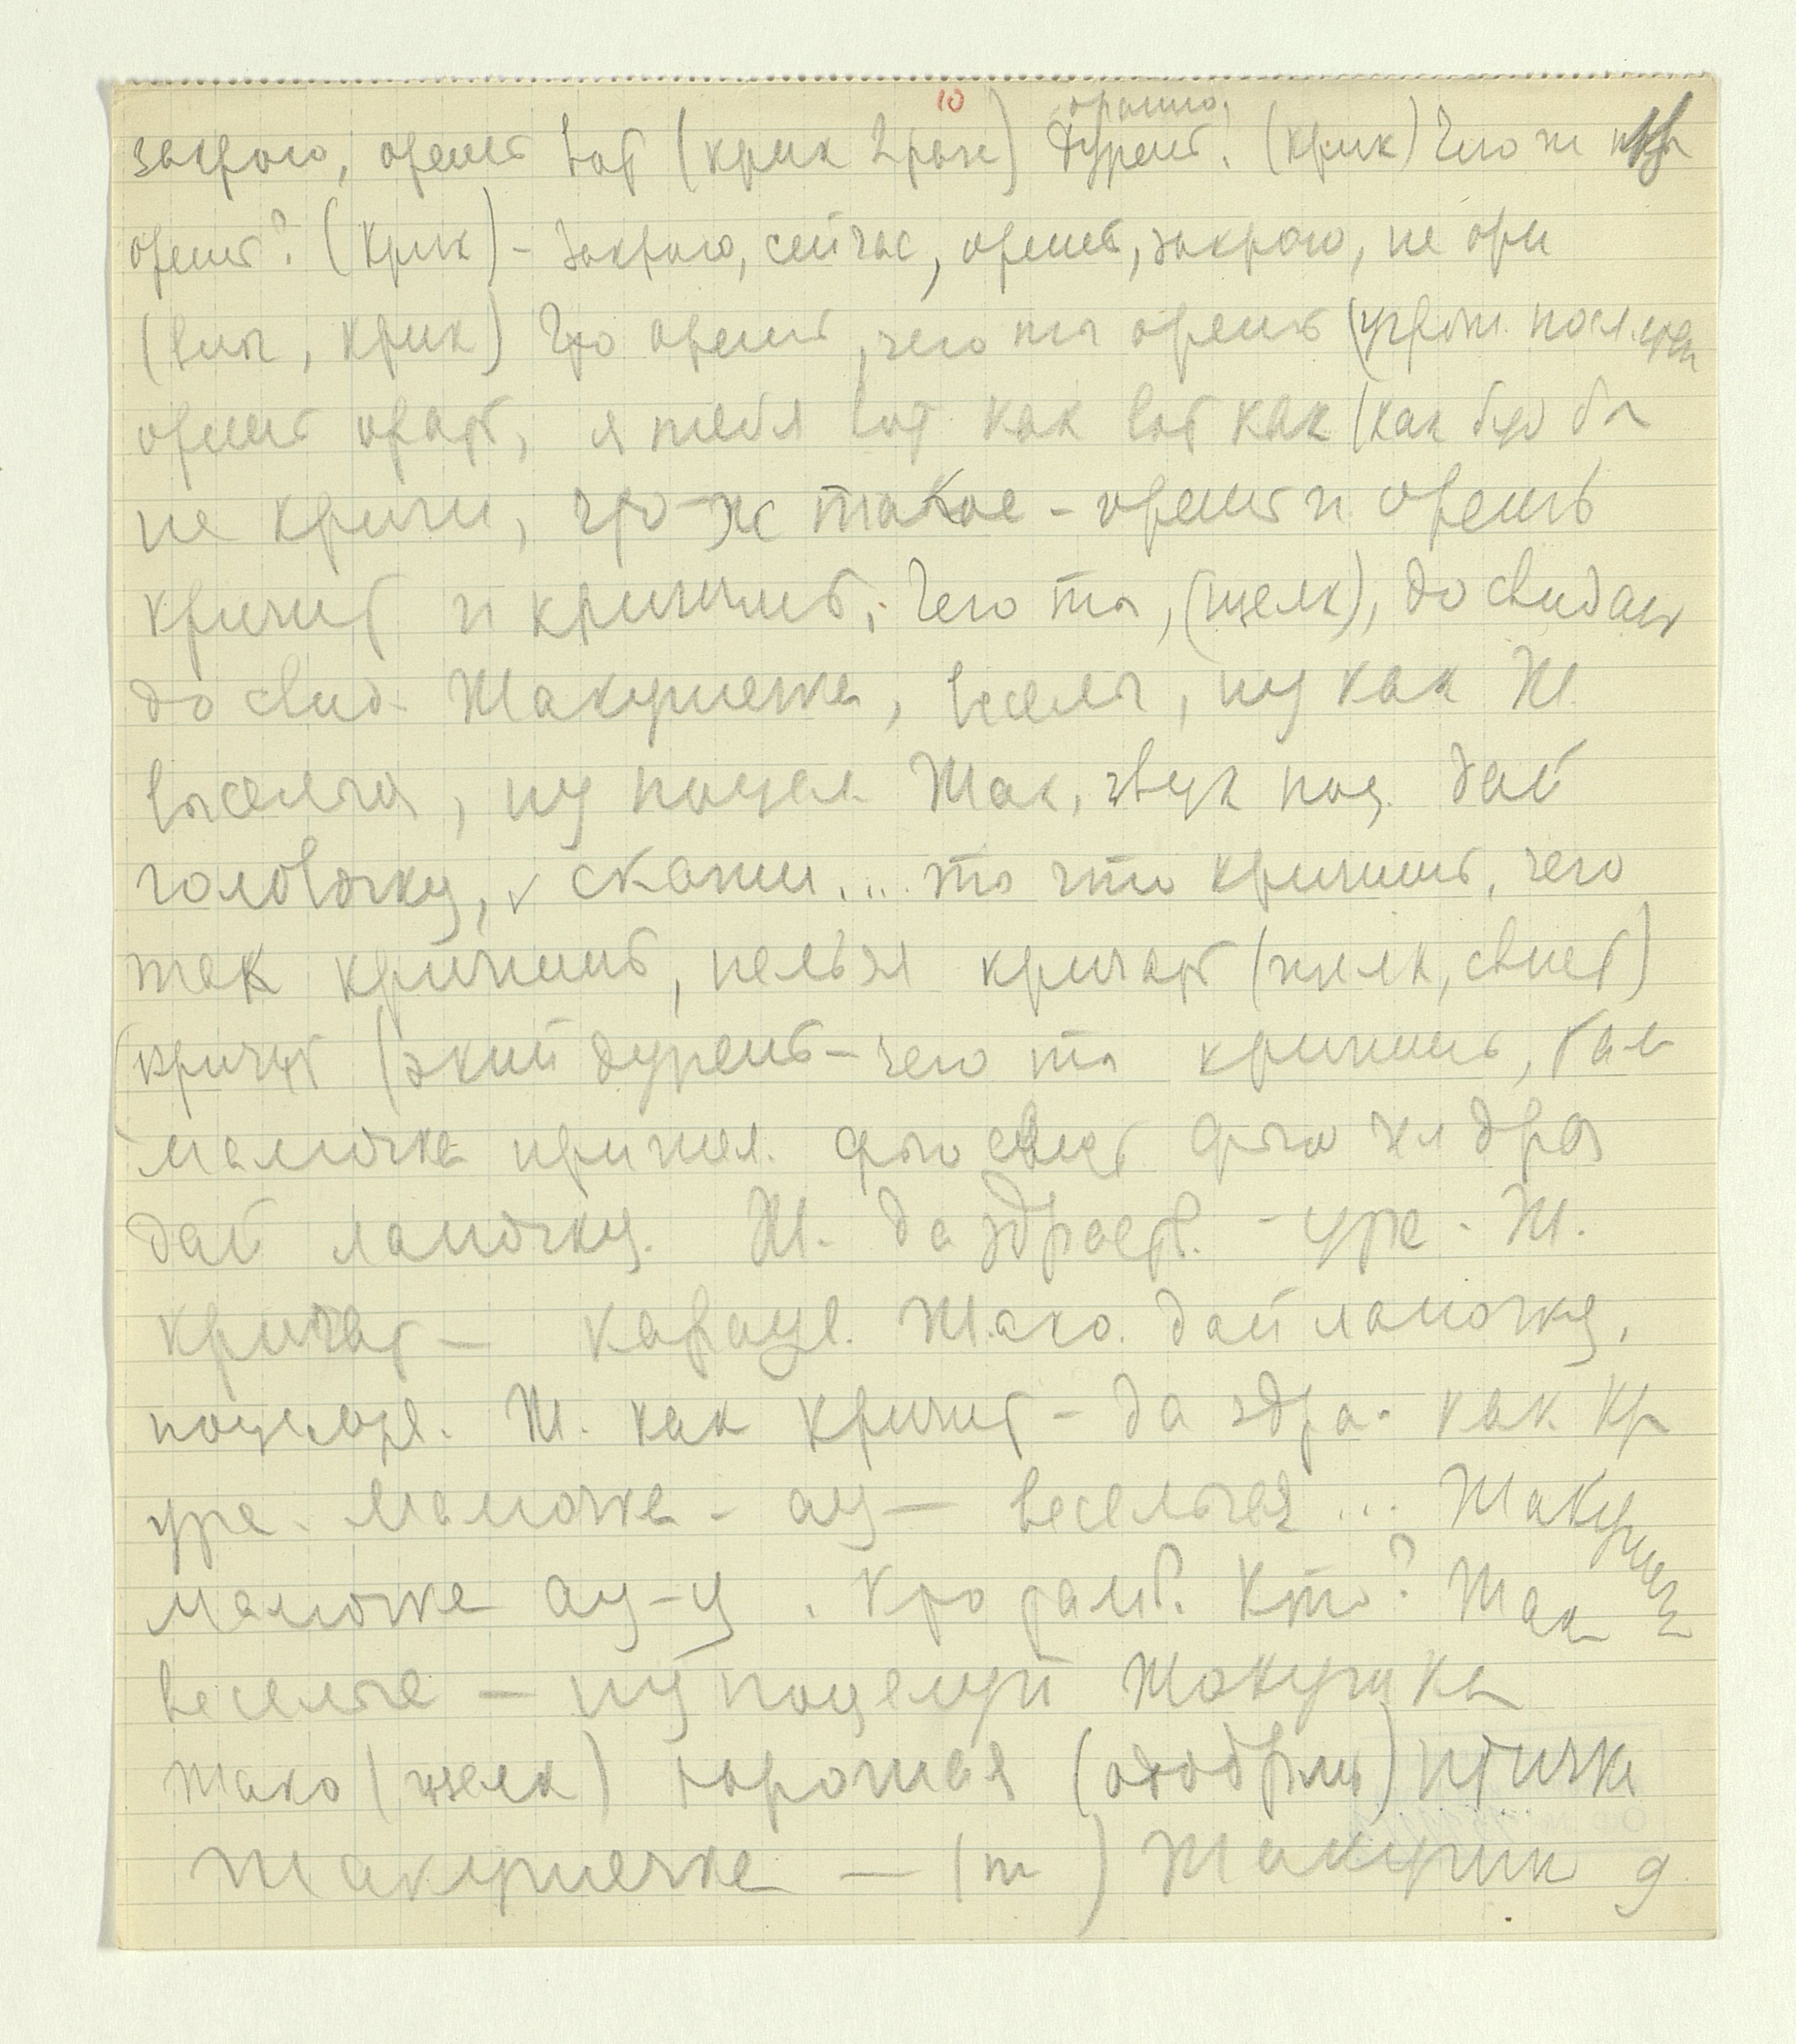 10
орешь,
закрою, орешь вот (крик 2 раза) дурень. (крик) Чего ж ты
орешь? (крик) – закрою, сейчас, орешь, закрою, не ори
(визг, крик) Что орешь, чего ты орешь (угрож.
орешь орать, я тебя вот как вот как (как буд бы
не кричи, что-ж такое – орешь и орешь
кричит и кричишь, Чего ты, (щелк), до свидань
до свид. Жакушечка, весел, ну как Ж.
ну поцел Жак, звук поц. дай
головочку, скажи... то что кричишь, чего
так кричишь, нельзя кричать (щелк, свист)
кричит (экий дурень – чего ты кричишь,
мамочка пришел. фью свист фью
дай лапочку. Ж. да здравств. – ура – Ж.
кричат – караул. Жако. дай лапочку,
поцелуй. Ж. как кричит – да здра. как кр
ура. мамочка – ау – ... Жакушка
мамочка ау-у. Кто там? Кто? Жак
– ну поцелуй Жакушка
Жако (щелк) хорошая птичка
Жакушечка – ( ) Жакушк